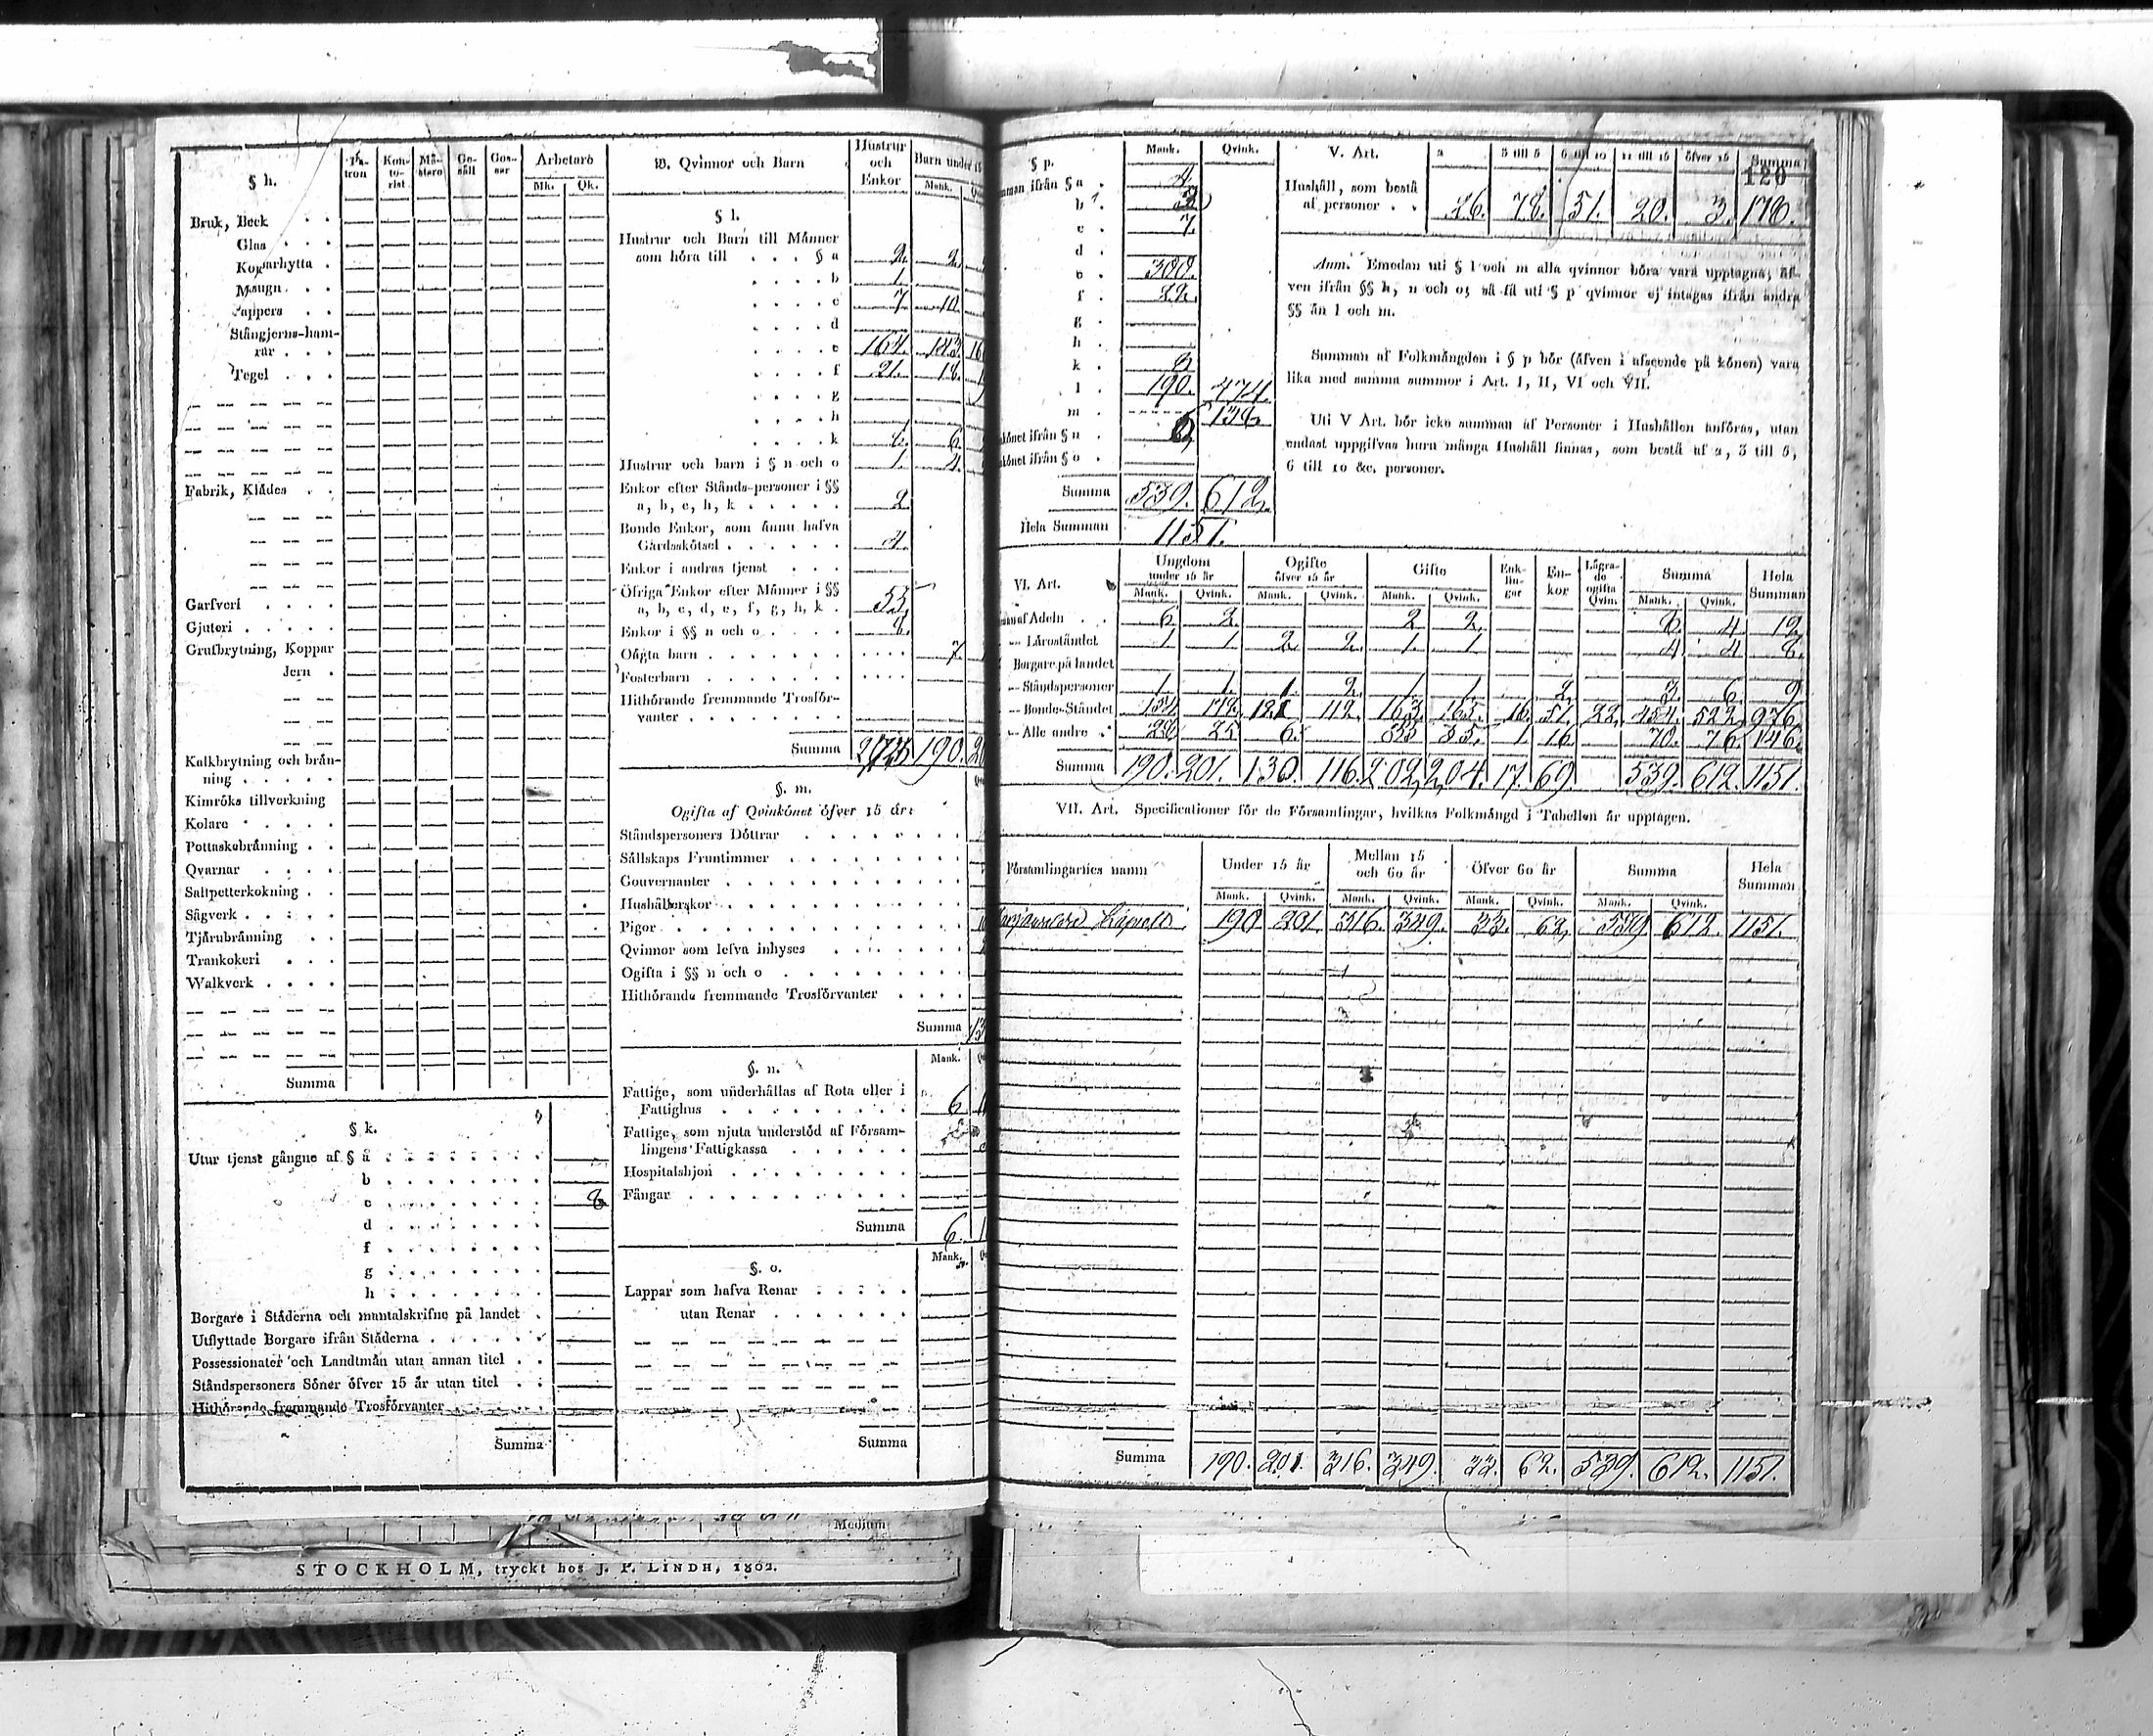 § h.
Pa-
tron
Kon-
to-
rist
Må-
stare
Ge-
säll
Gos-
sar
Arbetare
Mk. Qk.
Bruk, Beck . .
Glas . . .
Kopparhytta .
Masugn . .
Pappers . .
Stångjerns-ham-
rar . . .
Tegel . . .
Fabrik, Klädes . .
Garfveri . . . .
Gjuteri . . . . .
Grufbrytning, Koppar
Jern .
Kalkbrytning och brän-
ning . . . . .
Kimröks tillverkning
Kolare . . . . .
Pottaskebränning . .
Qvarnar . . . .
Saltpetterkokning . .
Sågverk . . . . .
Tjärubränning . .
Trankokeri . . .
Walkverk . . . .
Summa
§ k.
Utur tjenst gångne af § a . . . . . . . .
b . . . . . . . .
c . . . . . . . . 8
d . . . . . . . .
f . . . . . . . .
g . . . . . . . .
h . . . . . . . .
Borgare i Städerna och mantalskrifne på landet .
Utflyttade Borgare ifrån Städerna . . . . .
Possessionater och Landtmän utan annan titel . .
Ståndspersoners Söner öfver 15 år utan titel . .
Hithörande fremmande Trosförvanter . . . . .
Summa
Qvinnor och Barn
Hustrur
och
Enkor
Barn under 15
Mank.
§ l.
Hustrur och Barn till Männer
som höra till . . . § a 2. 2.
. . . . b 1.
. . . . c 7 10.
. . . . d
. . . . e 164. 143.
. . . . f 21. 18.
. . . . g
. . . . h
. . . . k 6.
Hustrur och barn i § n och o 1. 4.
Enkor efter Stånds-personer i §§
a, b, c, h, k . . . . . 2.
Bonde Enkor, som ännu hafva
Gårdsskötsel . . . . . . 4.
Enkor i andras tjenst . . .
Öfriga Enkor efter Männer i §§
a, b, c, d, e, f, g, h, k . 55.
Enkor i §§ n och o . . . . 8.
Oägta barn . . . . . . . 7.
Fosterbarn . . . . . . .
Hithörande fremmande Trosför-
vanter . . . . . . . .
Summa 190.
§. m.
Ogifta af Qvinkönet öfver 15 år:
Ståndspersoners Döttrar . . . . . . . .
Sällskaps Fruntimmer . . . . . . . . .
Gouvernanter . . . . . . . . . . . .
Hushållerskor . . . . . . . . . . . .
Pigor . . . . . . . . . . . . . . .
Qvinnor som lefva inhyses . . . . . .
Ogifta i §§ n och o . . . . . . . . .
Hithörande fremmande Trosförvanter . . . .
Summa
Mank.
§. n.
Fattige, som underhållas af Rota eller i
Fattighus . . . . . . . . . . 6.
Fattige, som njuta understöd af Försam-
lingens Fattigkassa . . . . . .
Hospitalshjon . . . . . . . . .
Fångar . . . . . . . . . . . .
Summa 6.
Mank.
§. o.
Lappar som hafva Renar . . . . .
utan Renar . . . . . . .
Summa
§ p.
Mank. Qvink.
ifrån § a . 4
b .
c . 7.
d .
e . 300.
f . 22.
g .
h .
k . 8
l . 190. 474.
m . 138.
ifrån § n . 6
ifrån § o .
Summa 539. 612.
Hela Summan 1151.
V. Art.
2 3 till 5 6 till 10 11 till 15 öfver 15 Summa
120
Hushåll, som bestå
af personer . . 26. 78. 51. 20. 3. 178.
Anm. Emedan uti § l och m alla qvinnor böra vara upptagna; äf-
ven ifrån §§ h, n och o; så få uti § p qvinnor ej intagas ifrån andra
§§ än l och m.
Summan af Folkmängden i § p bör (äfven i afseende på könen) vara
lika med samma summor i Art. I, II, VI och VII.
Uti V Art. bör icke summan af Personer i Hushållen anföras, utan
endast uppgifvas huru många Hushåll finnas, som bestå af 2, 3 till 5,
6 till 10 &c. personer.
VI. Art.
Ungdom
under 15 år
Ogifte
öfver 15 år
Gifte
Enk-
lin-
gar
En-
kor
Lägra-
de
ogifta
Qvin.
Summa
Hela
Summan
Mank. Qvink. Mank. Qvink. Mank. Qvink. Mank. Qvink.
af Adeln . . 6 2. 2 2. 8. 4. 12.
— Läroståndet 1 1 2 2. 1. 1 4 4 8.
Borgare på landet
— Ståndspersoner 1 1. 1. 2. 1 1. 2. 3. 6. 9
— Bonde-Ståndet 154 172. 121 112. 163. 165. 16. 51. 22. 454. 522. 976.
— Alle andre . 28 25 6. 35 35. 1. 16. 70. 76. 146.
Summa 190. 201. 130. 116. 202. 204. 17. 69. 539. 612. 1151.
VII. Art. Specificationer för de Församlingar, hvilkas Folkmängd i Tabellen är upptagen.
Församlingarnes namn
Under 15 år
Mellan 15
och 60 år
Öfver 60 år
Summa
Hela
Summan
Mank. Qvink. Mank. Qvink. Mank. Qvink. Mank. Qvink.
190 201 316. 349. 33. 62. 539 612. 1151.
Summa 190. 201. 316. 349. 33. 62. 539. 612. 1151.
Medium
STOCKHOLM, tryckt hos J. P. LINDH, 1802.